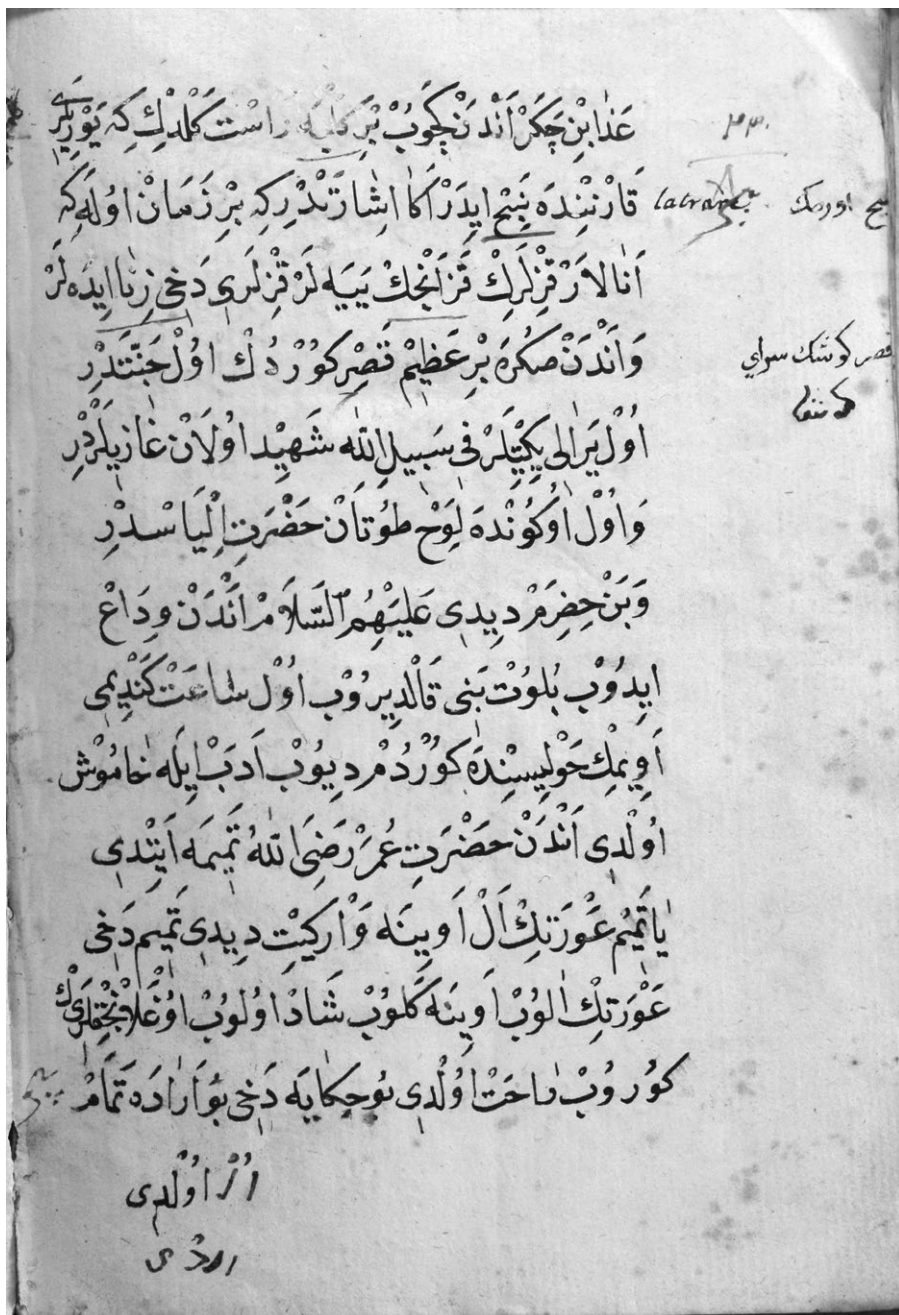 عَذَابِنْ چَكَرْ اَنْدَنْ چِقُوبْ بِرْ كَلْبَه رَاسْت كَلْدِكْ كِه يَوْرِيلَرِى
قَارْنِنْدَه نَبْح ايدَرْ اَكَا اِشَارَتْدُرْ كِه بِرْ زَمَانْ اوُلَه كِه
اَنَالَارْ قِزْلَرِكْ قَزَانْجِكْ يَيَه لَرْ قِزْلَرِى دَخِى زِنَا ايدَه لَرْ
وَاَنْدَنْ صِكْرَه بِرْ عَظِيمْ قَصِرْ كوُرْدُكْ اوُلْ جَنَّتْدِرْ
اوُلْ يَرَالِى يِكِيتِلَرْ فِى سَبِيلِ اللّٰه شَهِيد اوُلَانْ غَازِيلَرْدِرْ
وَاوُلْ اوُكوُنْدَه لِوَحْ طوُتَانْ حَضْرَتِ اِلْيَاسْدِرْ
وَبَنْ خِضِرَمْ دِيدِى عَلَيْهِمُ السَّلَامْ اَنْدَنْ وِدَاعْ
ايدُوبْ بُلوُتْ بَنِى قَالْدِيرُوبْ اوُلْ سَاعَتْ كَنْدِيمِى
اَوِيمِكْ حَوْلِيسِنْدَه كوُرْدُمْ دِيوُبْ اَدَبْ اِيلَه خَاموُشْ
اوُلْدِى اَنْدَنْ حَضْرَتِ عُمَرْ رَضِىَ اللّٰهُ تَمِيمَه اَيِتْدِى
يَا تَمِيمْ عَوْرَتِكْ اَلْ اَوِينَه وَارْكِيتْ دِيدِى تَمِيمْ دَخِى
عَوْرَتِكْ اَلوُبْ اَوِينَه كَلوُبْ شَادْ اوُلوُبْ اوُغْلَانْجِقْلَرِكْ
كوُرُوبْ رَاحَتْ اوُلْدِى بوُ حِكَايَه دَخِى بوُ اَرَادَه تَمَامْ
اوُلْدِى
٢٣٠
latrare
اورمك
قصر كوشك سراي